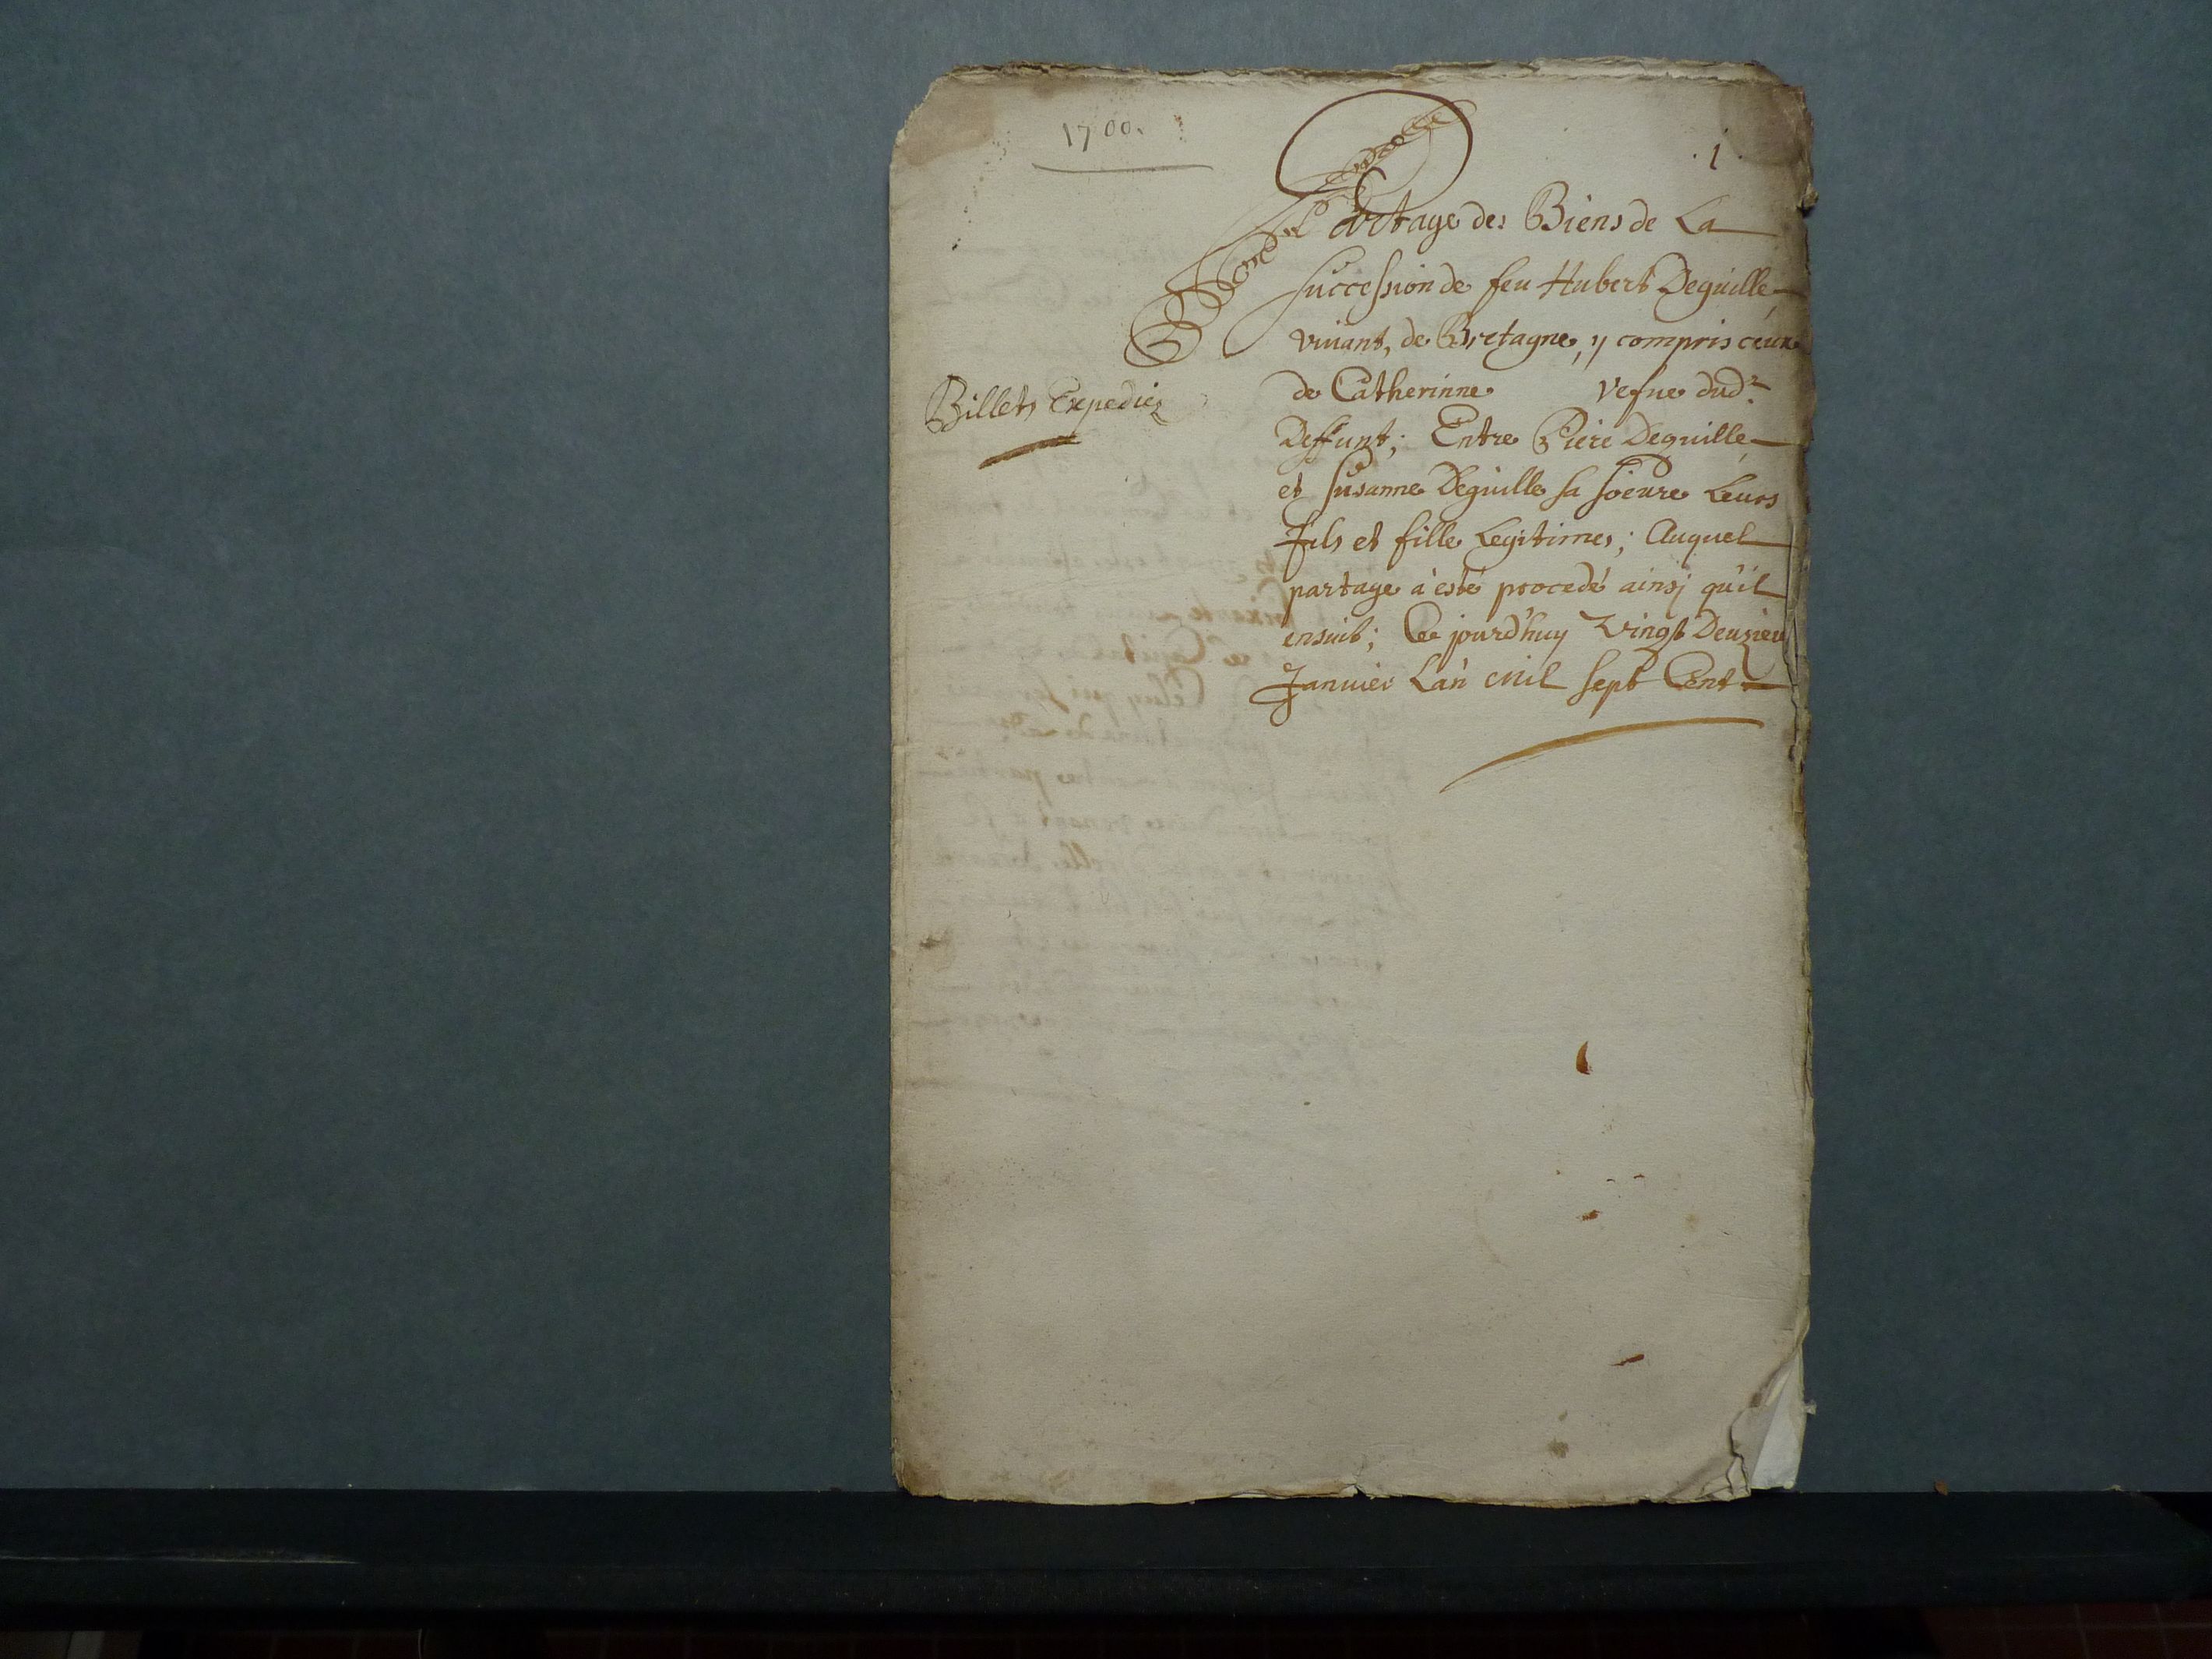 1700.
1
Partage des Biens de La
succession de feu Hubert Deguille
vivant, de Bretagne, y compris ceux
de Catherinne vefue dud.
Deffunt; Entre Piere Deguille
et Susanne Deguille sa soeure Leurs
fils et fille Legitimes; Auquel
partage à esté procedé ainsj qu'il
ensuit; Ce jourd'huy Vingt Deuxiem
Janvier L'an mil sept Cent
Billets Expediez